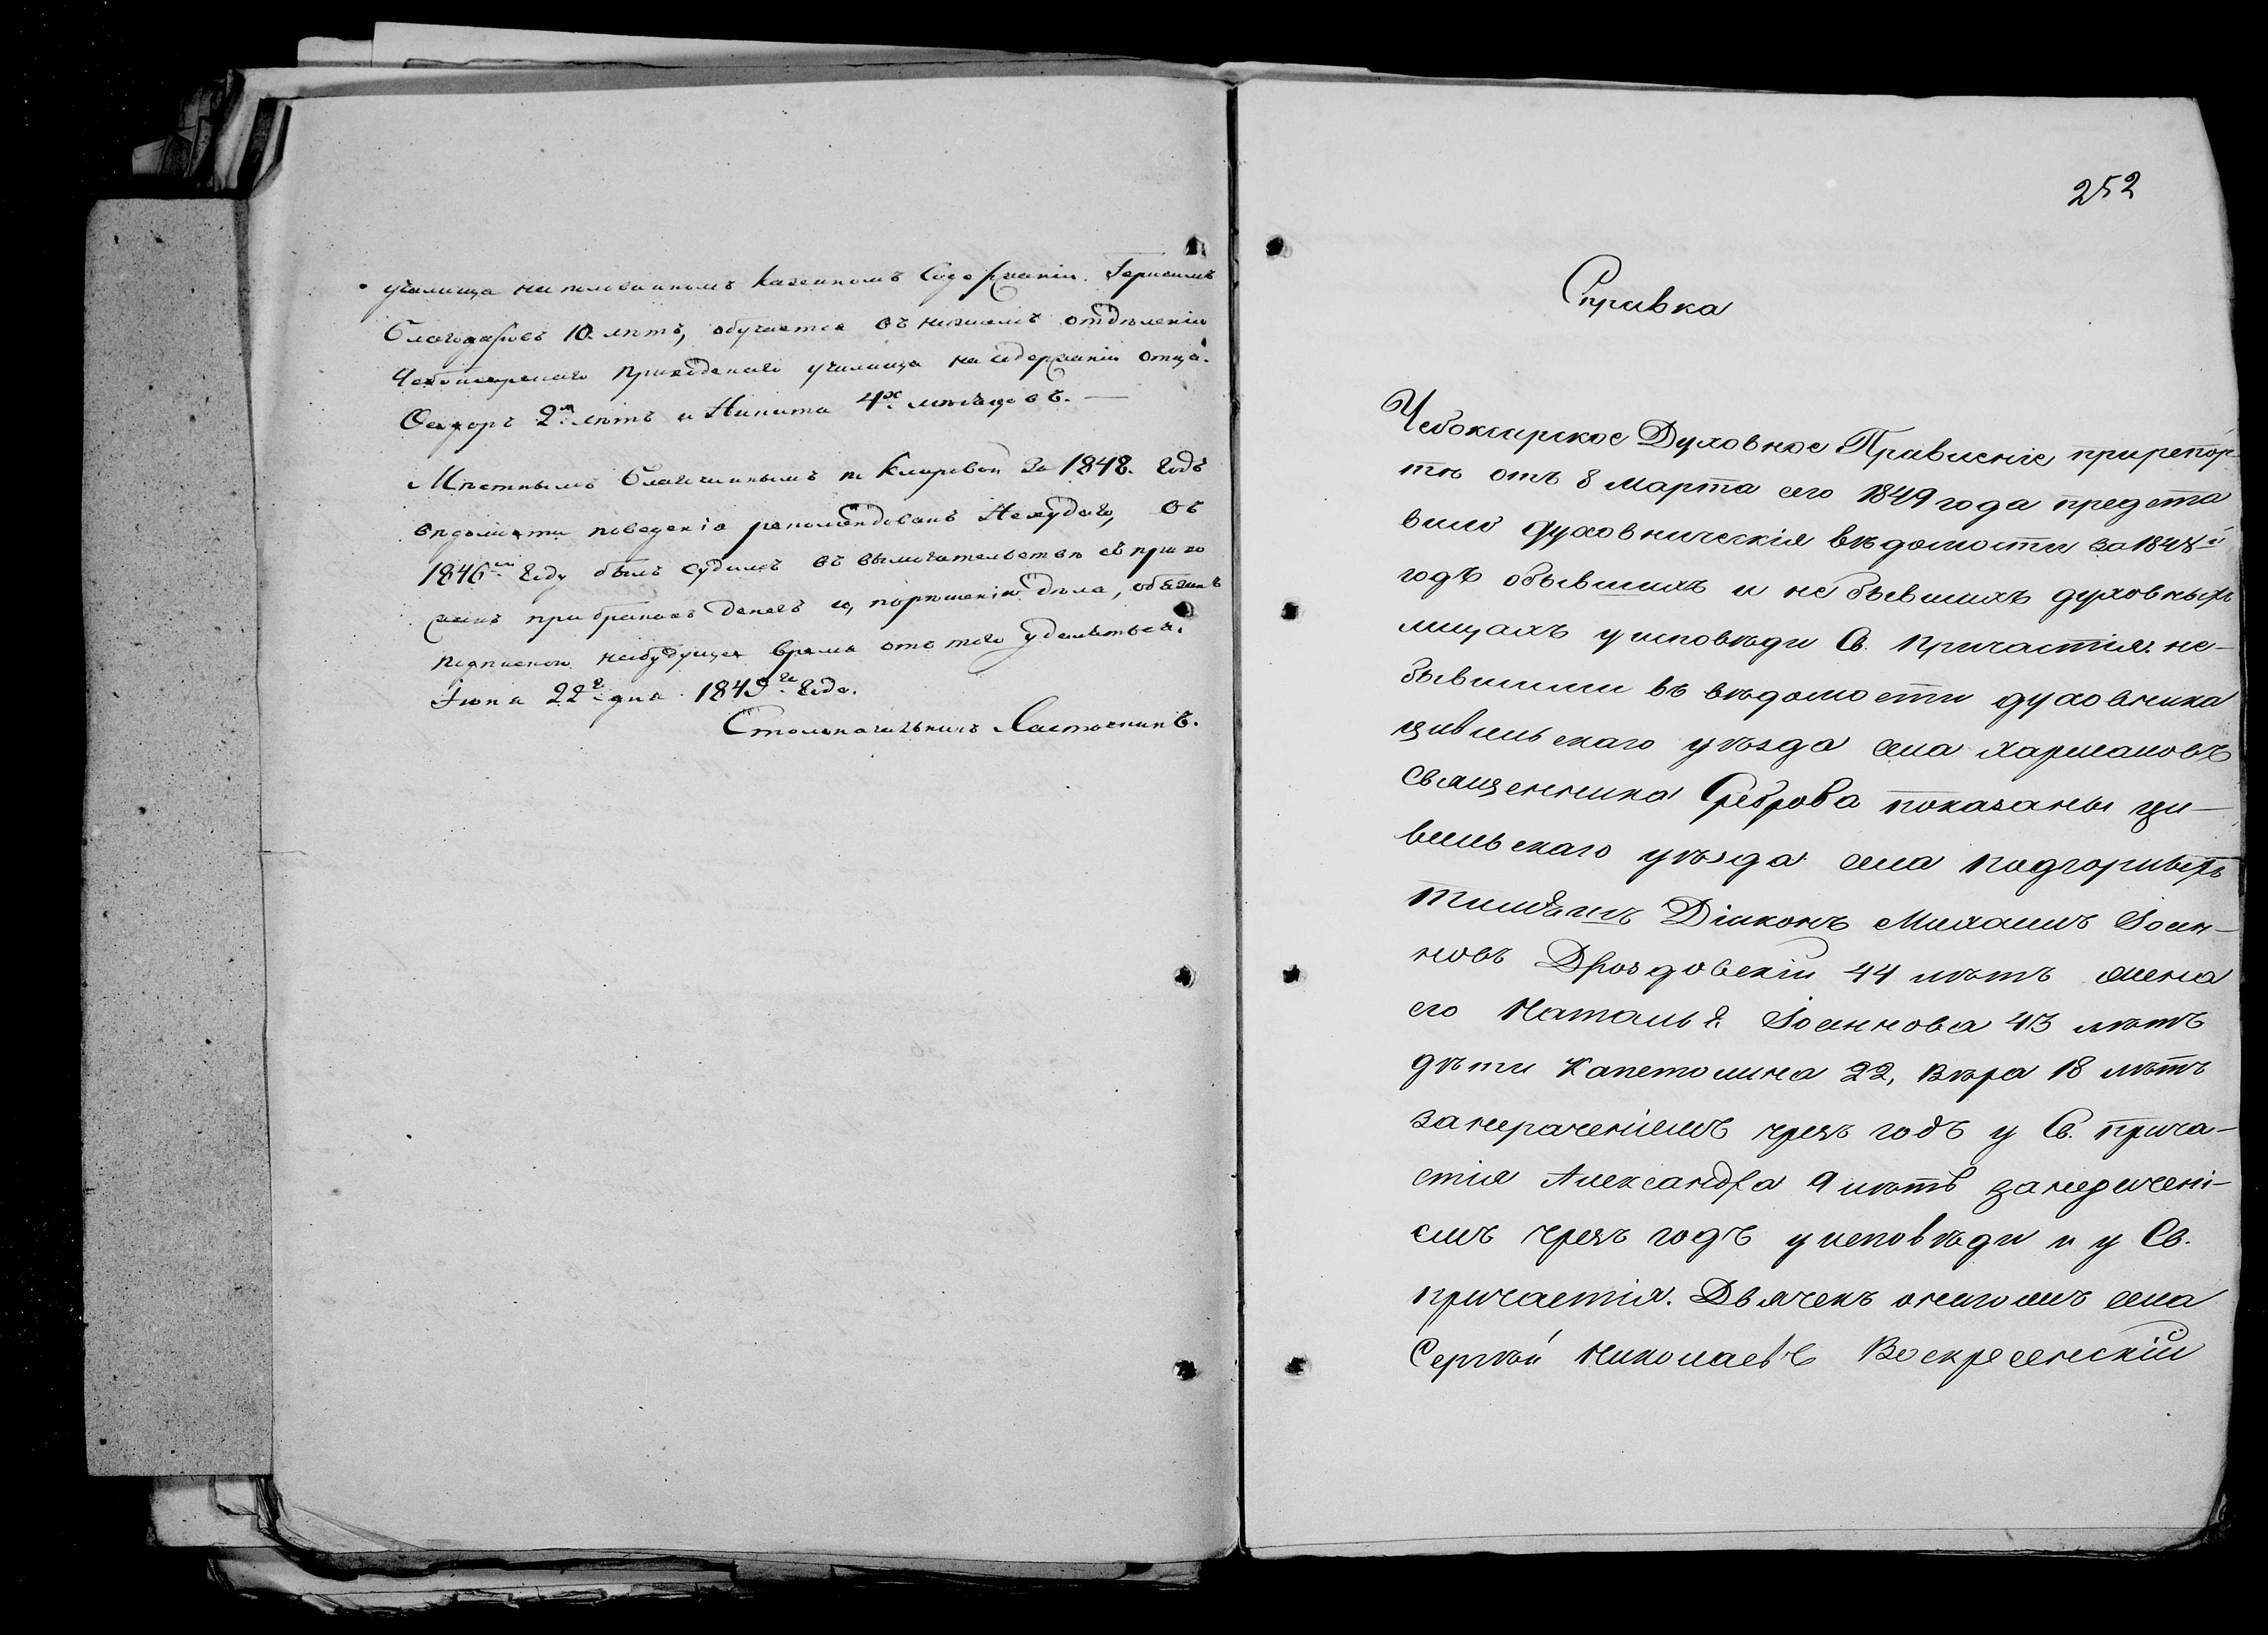 училища на половинномъ казенномъ содержаніи. Герасимъ
Благодаровъ 10. лѣтъ, обучается въ низшемъ отдѣленіи
Чебоксарскаго приходскаго училища на содержаніи отца.
Ѳедоръ 2хъ лѣтъ и Никита 4х мѣсяцовъ. —
Мѣстнымъ благочиннымъ въ клировой за 1848. годъ
вѣдомости поведенія рекомендованъ нехудаго, въ
1846м году былъ судимъ въ вымогательствѣ съ прихо
жанъ при бракахъ денегъ и, порѣшенію дѣла, обязанъ
подпискою набудущее время отъ того удаляться.
Іюня 22го дня 1849го года.
Столоначальникъ Ласточкинъ.
252
Справка
Чебоксарское Духовное Правленіе прирепор
тѣ отъ 8 марта сего 1849 года предста
вило духовническія вѣдомости за 1848й
годъ обывшихъ и не бывшихъ духовныхъ
лицахъ уисповѣди Св. Причастія. не-
бывшими въ вѣдомости духовника
цивильскаго уѣзда села
священника Среброва показаны ци-
вильскаго уѣзда села Подгорныхъ
Тимяшъ Діаконъ Михаилъ Іоан-
новъ Дроздовскій 44 лѣтъ жена
его Наталья Іоаннова 43 лѣтъ
дѣти Капетолина 22, Вѣра 18 лѣтъ
занераченіемъ чрезъ годъ у Св. прича-
стія Александра 9 лѣтъ занерачені-
емъ чрезъ годъ уисповѣди и у Св.
причастія. Дьячекъ оногожъ села
Сергѣй Николаевъ Воскресенскій